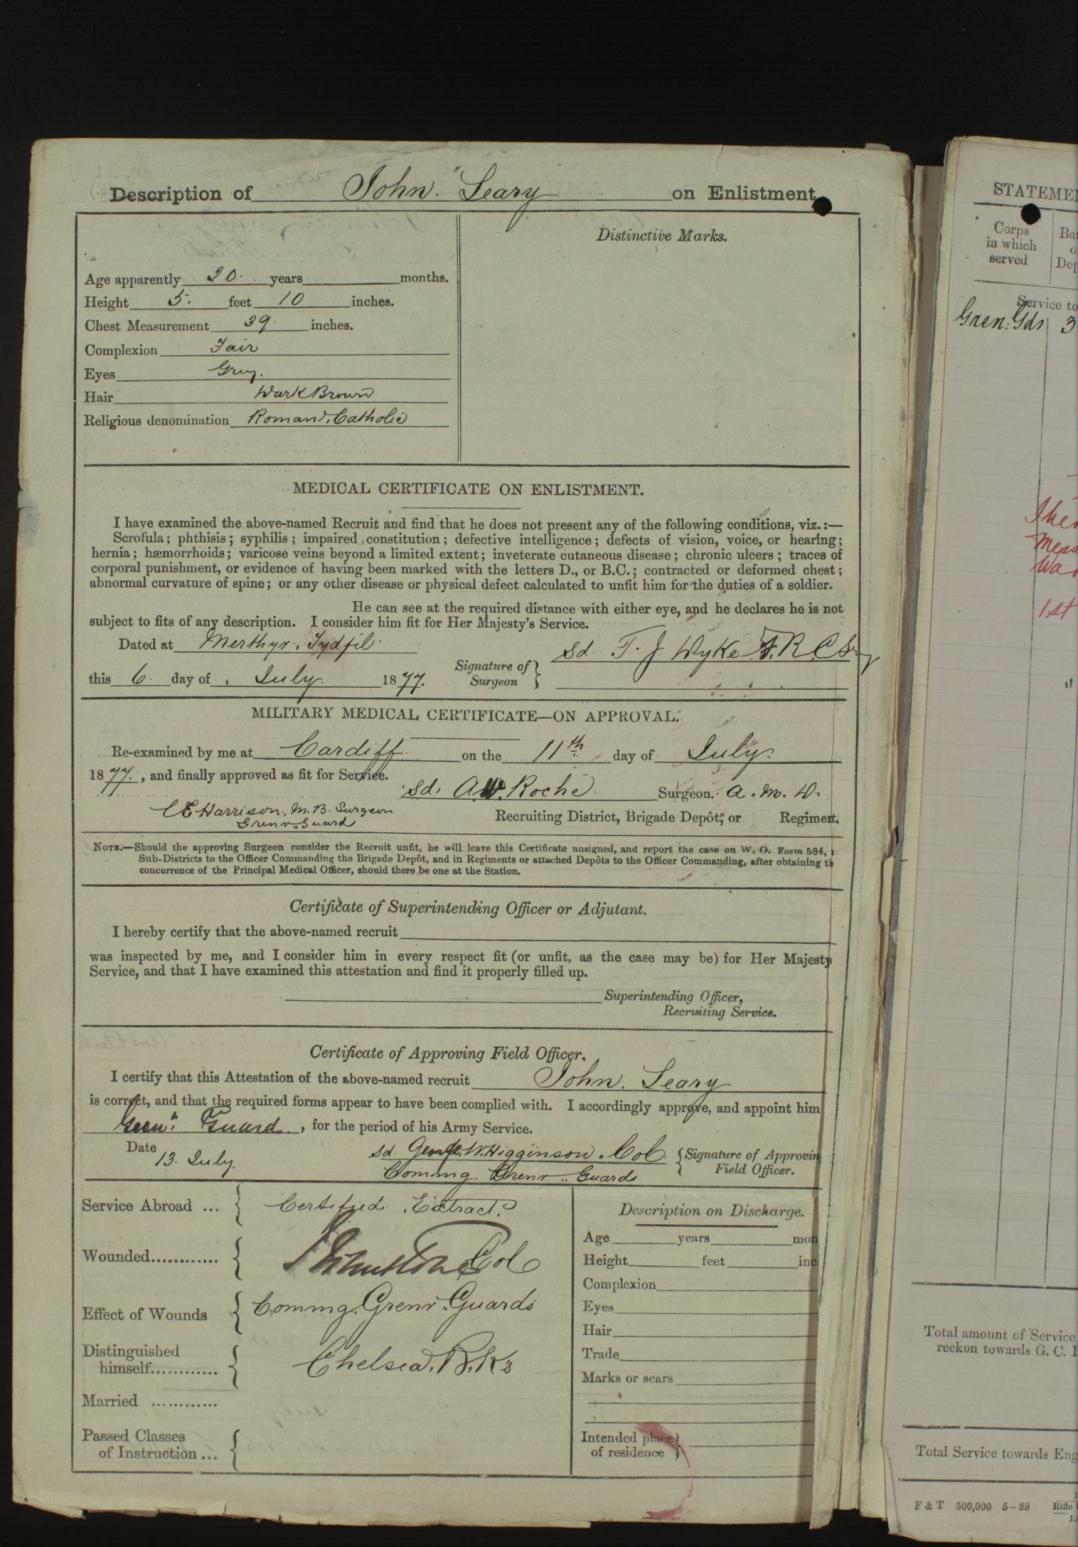 Description of John Leary on Enlistment
Distinctive Marks.
Age apparently 20 years months.
Height 5 feet 10 inches.
Chest Measurement 39 inches.
Complexion Fair
Eyes Grey.
Hair Dark Brown
Religious denomination Roman Catholic
MEDICAL CERTIFICATE ON ENLISTMENT.
I have examined the above-named Recruit and find that he does not present any of the following conditions, viz.:—
Scrofula; phthisis; syphilis; impaired constitution; defective intelligence; defects of vision, voice, or hearing;
hernia; hæmorrhoids; varicose veins beyond a limited extent; inveterate cutaneous disease; chronic ulcers; traces of
corporal punishment, or evidence of having been marked with the letters D., or B.C.; contracted or deformed chest;
abnormal curvature of spine; or any other disease or physical defect calculated to unfit him for the duties of a soldier.
He can see at the required distance with either eye, and he declares he is not
subject to fits of any description. I consider him fit for Her Majesty's Service.
Dated at Merthyr Tydfil
this 6 day of July 1877.
Signature of Surgeon } Sd T. J Wyke F.R.C.S.
MILITARY MEDICAL CERTIFICATE—ON APPROVAL.
Re-examined by me at Cardiff on the 11th day of July
1877, and finally approved as fit for Service.
Sd. A.W. Roche Surgeon. A. M. D.
C E Harrison, M. B. Surgeon
Grenr. Guard
Recruiting District, Brigade Depôt, or Regiment.
NOTE.—Should the approving Surgeon consider the Recruit unfit, he will leave this Certificate unsigned, and report the case on W. O. Form 584,
Sub-Districts to the Officer Commanding the Brigade Depôt, and in Regiments or attached Depôts to the Officer Commanding, after obtaining
concurrence of the Principal Medical Officer, should there be one at the Station.
Certificate of Superintending Officer or Adjutant.
I hereby certify that the above-named recruit
was inspected by me, and I consider him in every respect fit (or unfit, as the case may be) for Her Majesty
Service, and that I have examined this attestation and find it properly filled up.
Superintending Officer,
Recruiting Service.
Certificate of Approving Field Officer.
I certify that this Attestation of the above-named recruit John. Leary
is correct, and that the required forms appear to have been complied with. I accordingly approve, and appoint him
Guard, for the period of his Army Service.
Date 13. July
Sd George W. Higginson. Col { Signature of Approvin
Commg. Grenr. Guards Field Officer.
Service Abroad ... { Certified Extract.
Wounded............ { Col
Effect of Wounds { Commg. Grenr. Guards
Distinguished
himself............ { Chelsea. B.Ks
Married ............
Passed Classes
of Instruction ... {
Description on Discharge.
Age years mon
Height feet inc
Complexion
Eyes
Hair
Trade
Marks or scars
Intended place
of residence }
STATEME
Corps
in which
served
Ba
Dep
Service to
Gren: Gds 3
1st
Total amount of Service
reckon towards G. C.
Total Service towards Eng
F & T 500,000 5—88